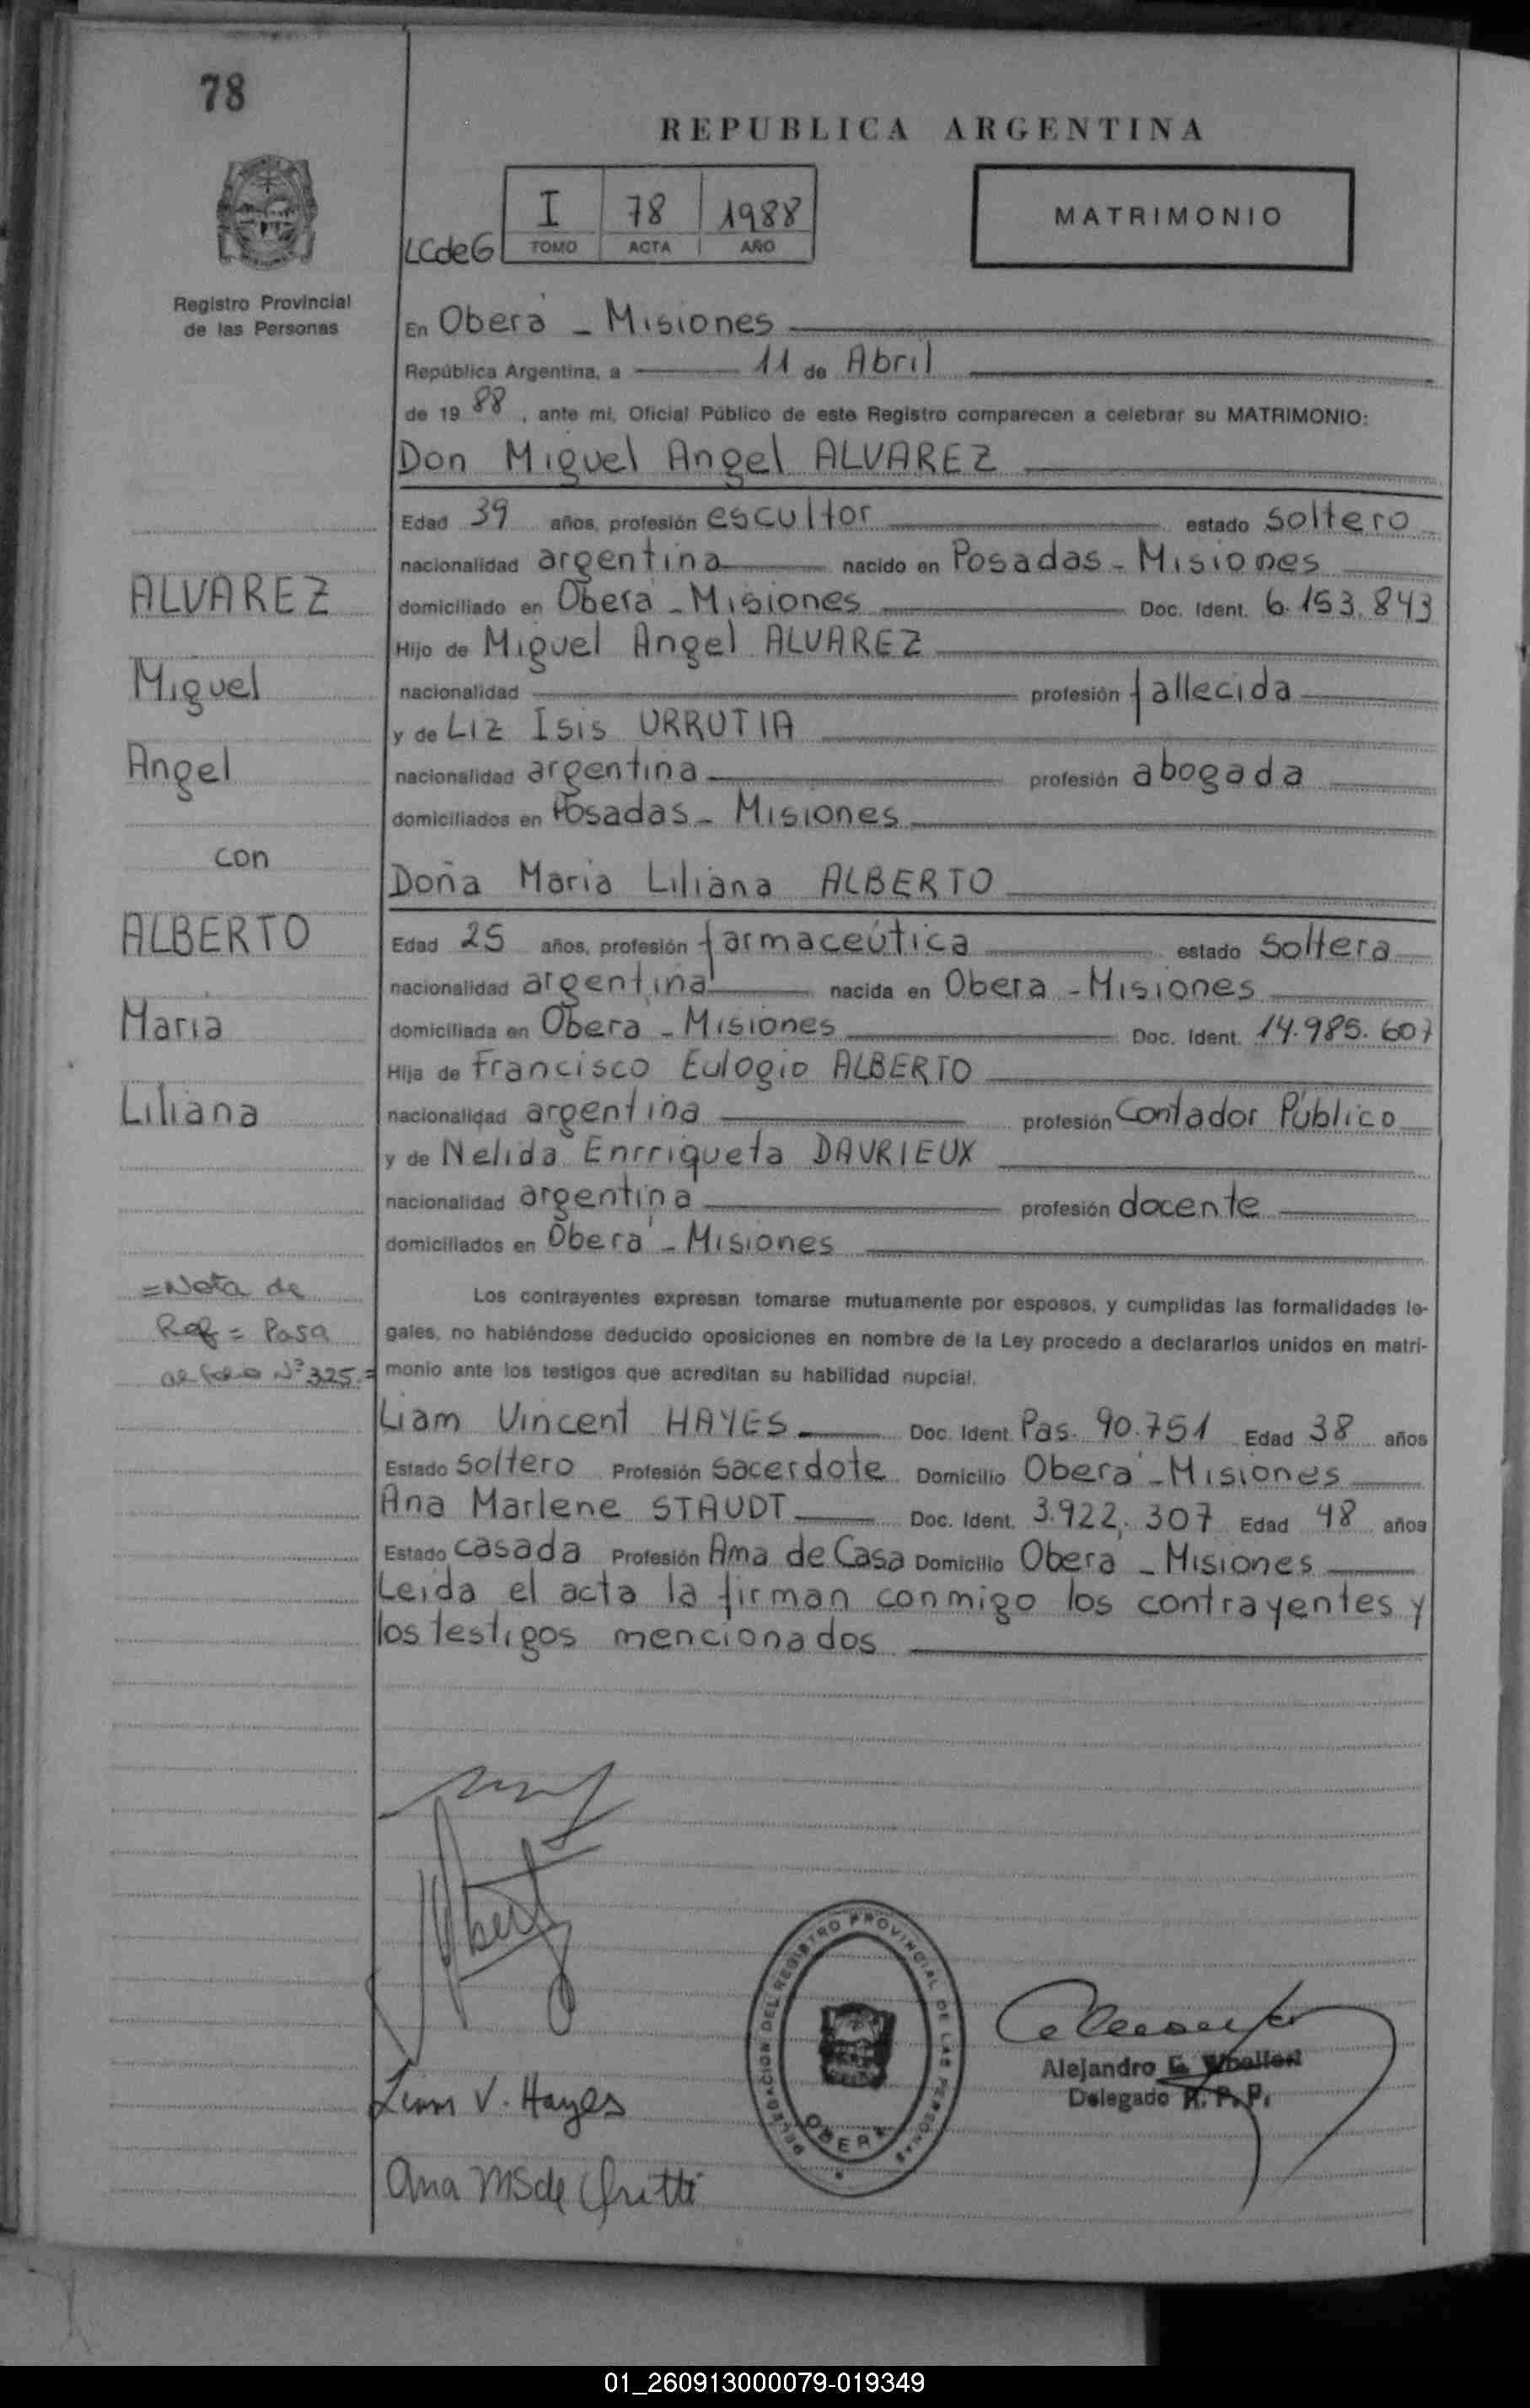 78
REPUBLICA ARGENTINA
I 78 1988
LCdeG TOMO ACTA AÑO
MATRIMONIO
Registro Provincial
de las Personas
En Oberá - Misiones
República Argentina, a 11 de Abril
de 19 88, ante mí, Oficial Público de este Registro comparecen a celebrar su MATRIMONIO:
Don Miguel Angel ALVAREZ
Edad 39 años, profesión escultor estado soltero
nacionalidad argentina nacido en Posadas - Misiones
domiciliado en Oberá - Misiones Doc. Ident. 6.153.843
Hijo de Miguel Angel ALVAREZ
nacionalidad profesión fallecida
y de Liz Isis URRUTIA
nacionalidad argentina profesión abogada
domiciliados en Posadas - Misiones
Doña Maria Liliana ALBERTO
Edad 25 años, profesión farmaceútica estado soltera
nacionalidad argentina nacida en Obera - Misiones
domiciliada en Obera - Misiones Doc. Ident. 14.985.607
Hija de Francisco Eulogio ALBERTO
nacionalidad argentina profesión Contador Público
y de Nelida Enrriqueta DAVRIEUX
nacionalidad argentina profesión docente
domiciliados en Oberá - Misiones
Los contrayentes expresan tomarse mutuamente por esposos, y cumplidas las formalidades le-
gales, no habiéndose deducido oposiciones en nombre de la Ley procedo a declararlos unidos en matri-
monio ante los testigos que acreditan su habilidad nupcial.
Liam Vincent HAYES Doc. Ident. Pas. 90.751 Edad 38 años
Estado soltero Profesión sacerdote Domicilio Oberá - Misiones
Ana Marlene STAUDT Doc. Ident. 3.922.307 Edad 48 años
Estado casada Profesión Ama de Casa Domicilio Oberá - Misiones
Leida el acta la firman conmigo los contrayentes y
los testigos mencionados
ALVAREZ
Miguel
Angel
con
ALBERTO
Maria
Liliana
=Nota de
Ref = Pasa
al folio Nº 325.=
DELEGACION DEL REGISTRO PROVINCIAL DE LAS PERSONAS
OBERA
Alejandro
Delegado R. P. P.
Liam V. Hayes
Ana MS de
01_260913000079-019349